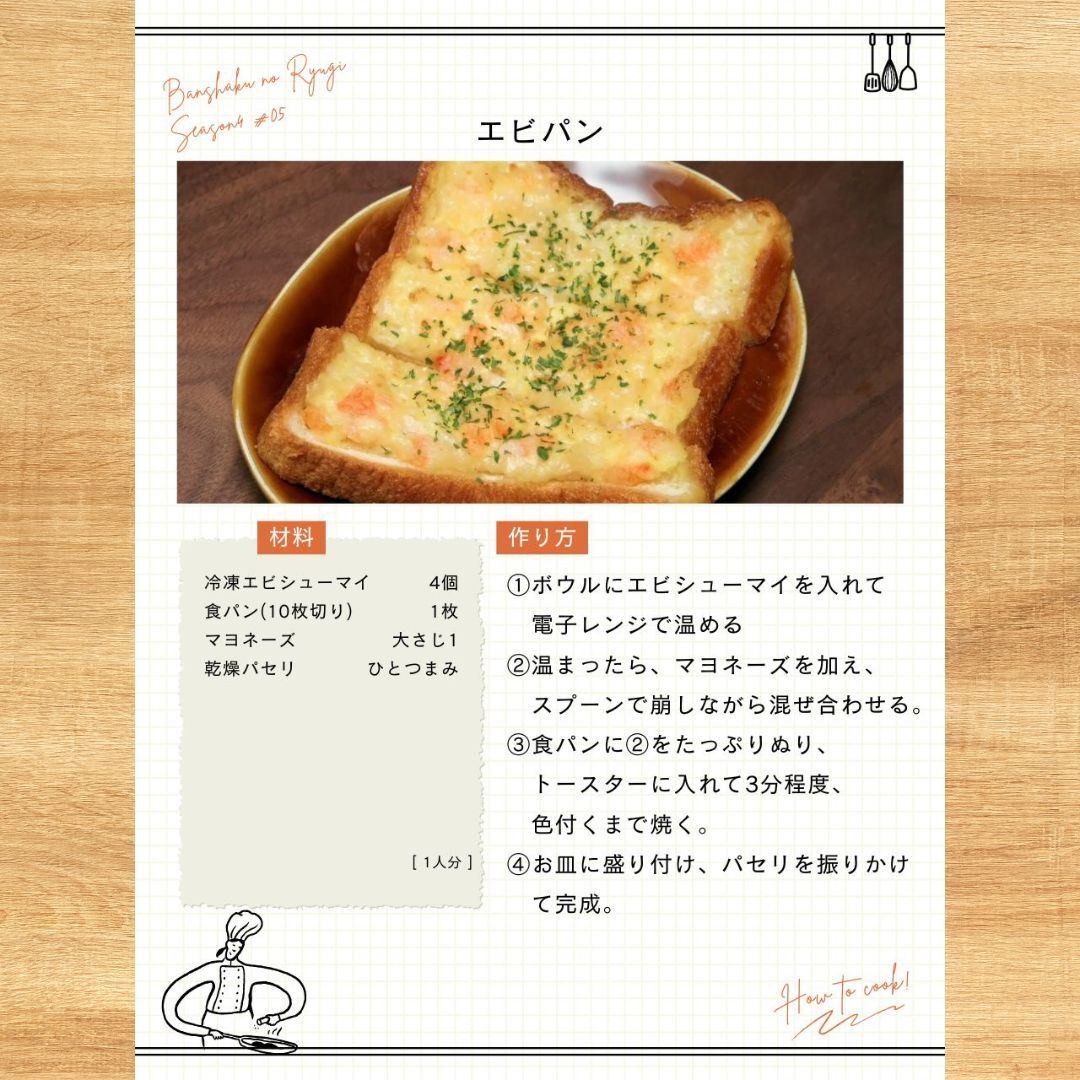 Banshaku no Ryugi
Season4 #05
エビパン
材料
冷凍エビシューマイ 4個
食パン(10枚切り) 1枚
マヨネーズ 大さじ1
乾燥パセリ ひとつまみ
[ 1人分 ]
作り方
①ボウルにエビシューマイを入れて
電子レンジで温める
②温まったら、マヨネーズを加え、
スプーンで崩しながら混ぜ合わせる。
③食パンに②をたっぷりぬり、
トースターに入れて3分程度、
色付くまで焼く。
④お皿に盛り付け、パセリを振りかけ
て完成。
How to cook!